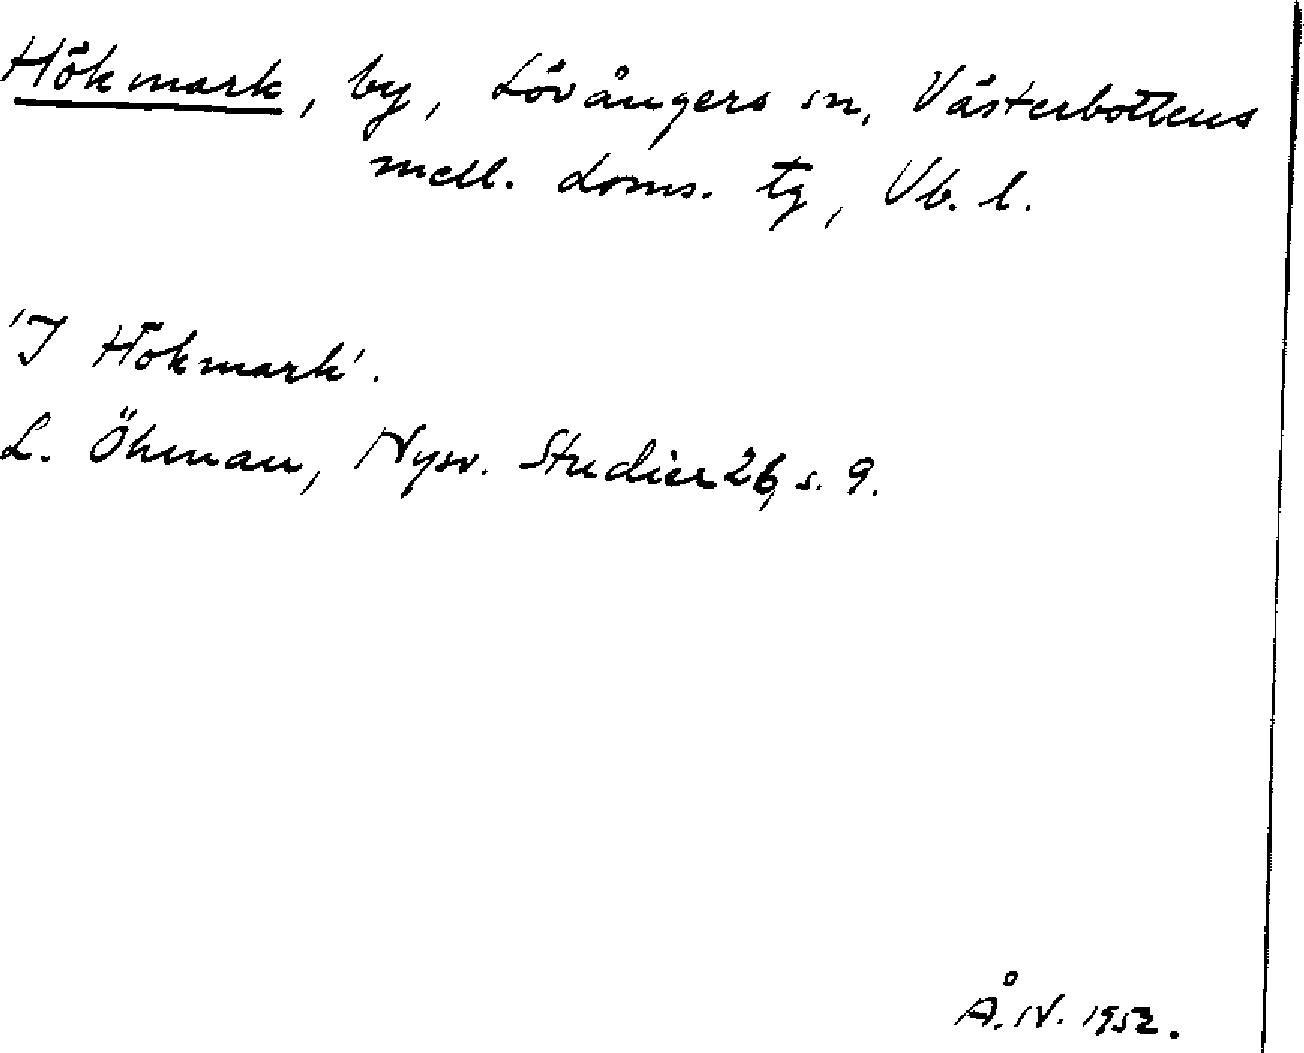 Hökmark, by, Lövångers sn, Västerbottens
mell. doms. tg, Vb. l.
'I Hökmark'.
L. Öhman, Nysv. Studier 26, s. 9.
Å. N. 1952.